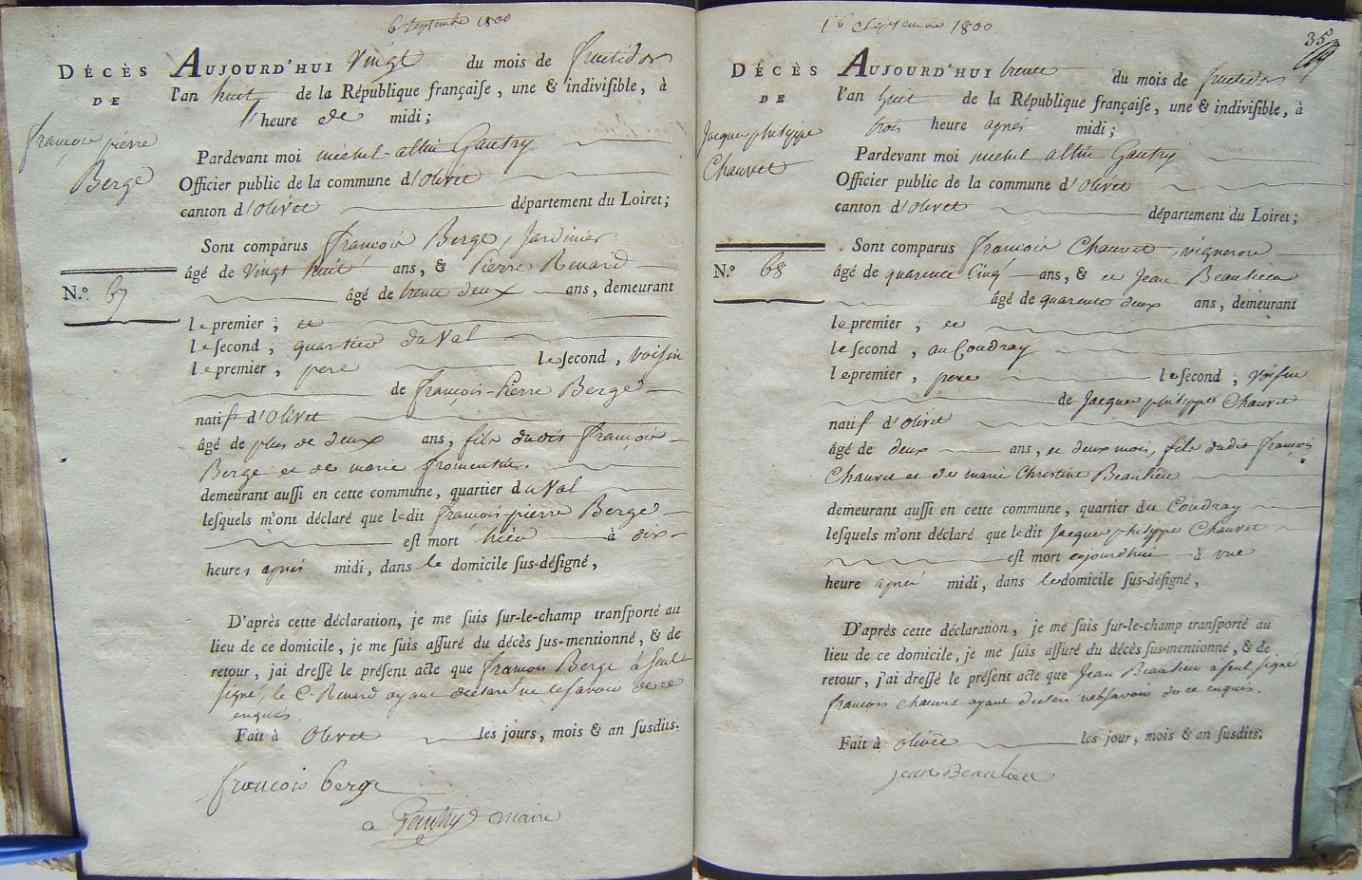 6 Septembre 1800
DÉCÈS
DE
François pierre
Bergé
N.º 67
AUJOURD'HUI Vingt du mois de fructidor
l'an huit de la République françaiſe, une & indiviſible, à
heure de midi ;
Pardevant moi michel-altin Gautry
Officier public de la commune d'Olivet
canton d'Olivet département du Loiret;
Sont comparus françois Bergé, Jardinier
âgé de Vingt huit ans, & Pierre Renard
âgé de trente deux ans, demeurant
le premier ; ce
le ſecond , quartier du Val
le premier , pere le ſecond , voiſin
de françois-Pierre Bergé
natif d'Olivet
âgé de plus de deux ans, fils dudit françois
Bergé et de marie fromentin.
demeurant auſſi en cette commune, quartier du Val
leſquels m'ont déclaré que ledit françois-pierre Bergé
eſt mort hier à dix
heures après midi, dans le domicile ſus-déſigné,
D'après cette déclaration, je me ſuis ſur-le-champ tranſporté au
lieu de ce domicile, je me ſuis aſſuré du décès ſus-mentionné, & de
retour, j'ai dreſſé le préſent acte que françois Bergé a ſeul
ſigné, le C. Renard ayant déclaré ne le ſavoir de ce
enquis.
Fait à Olivet les jours, mois & an ſuſdits.
francois berge
a Gautry maire
16 Septembre 1800
35
DÉCÈS
DE
Jacques philippe
Chauvet
N.º 68
AUJOURD'HUI trente du mois de fructidor
l'an huit de la République françaiſe, une & indiviſible, à
trois heure après midi ;
Pardevant moi michel altin Gautry
Officier public de la commune d'Olivet
canton d'Olivet département du Loiret;
Sont comparus françois Chauvet vigneron
âgé de quarente cinq ans, & ce Jean Beaulieu
âgé de quarente deux ans, demeurant
le premier ; ce
le ſecond , au Coudray
le premier , pere le ſecond ; voiſin
de Jacques philippe Chauvet
natif d'Olivet
âgé de deux ans, et deux mois, fils dudit françois
Chauvet et de marie Christine Beaulieu
demeurant auſſi en cette commune, quartier du Coudray
leſquels m'ont déclaré que ledit Jacques philippe Chauvet
eſt mort aujourdhui à une
heure après midi, dans le domicile ſus-déſigné,
D'après cette déclaration, je me ſuis ſur-le-champ tranſporté au
lieu de ce domicile, je me ſuis aſſuré du décès ſus-mentionné, & de
retour, j'ai dreſſé le préſent acte que Jean Beaulieu a ſeul ſigné
françois Chauvet ayant déclaré ne le ſavoir de ce enquis.
Fait à Olivet les jour, mois & an ſuſdits.
jean Beaulieu